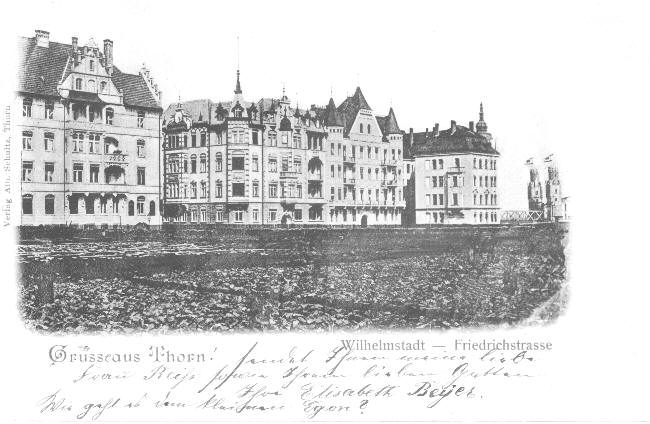 Verlag Alb. Schultz, Thorn
Wilhelmstadt — Friedrichstrasse
Grüsse aus Thorn! sendet Ihnen meine liebe
Frau Ihrem lieben Gatten
Ihre Elisabeth Beyer.
Wie geht es dem kleinen Egon?